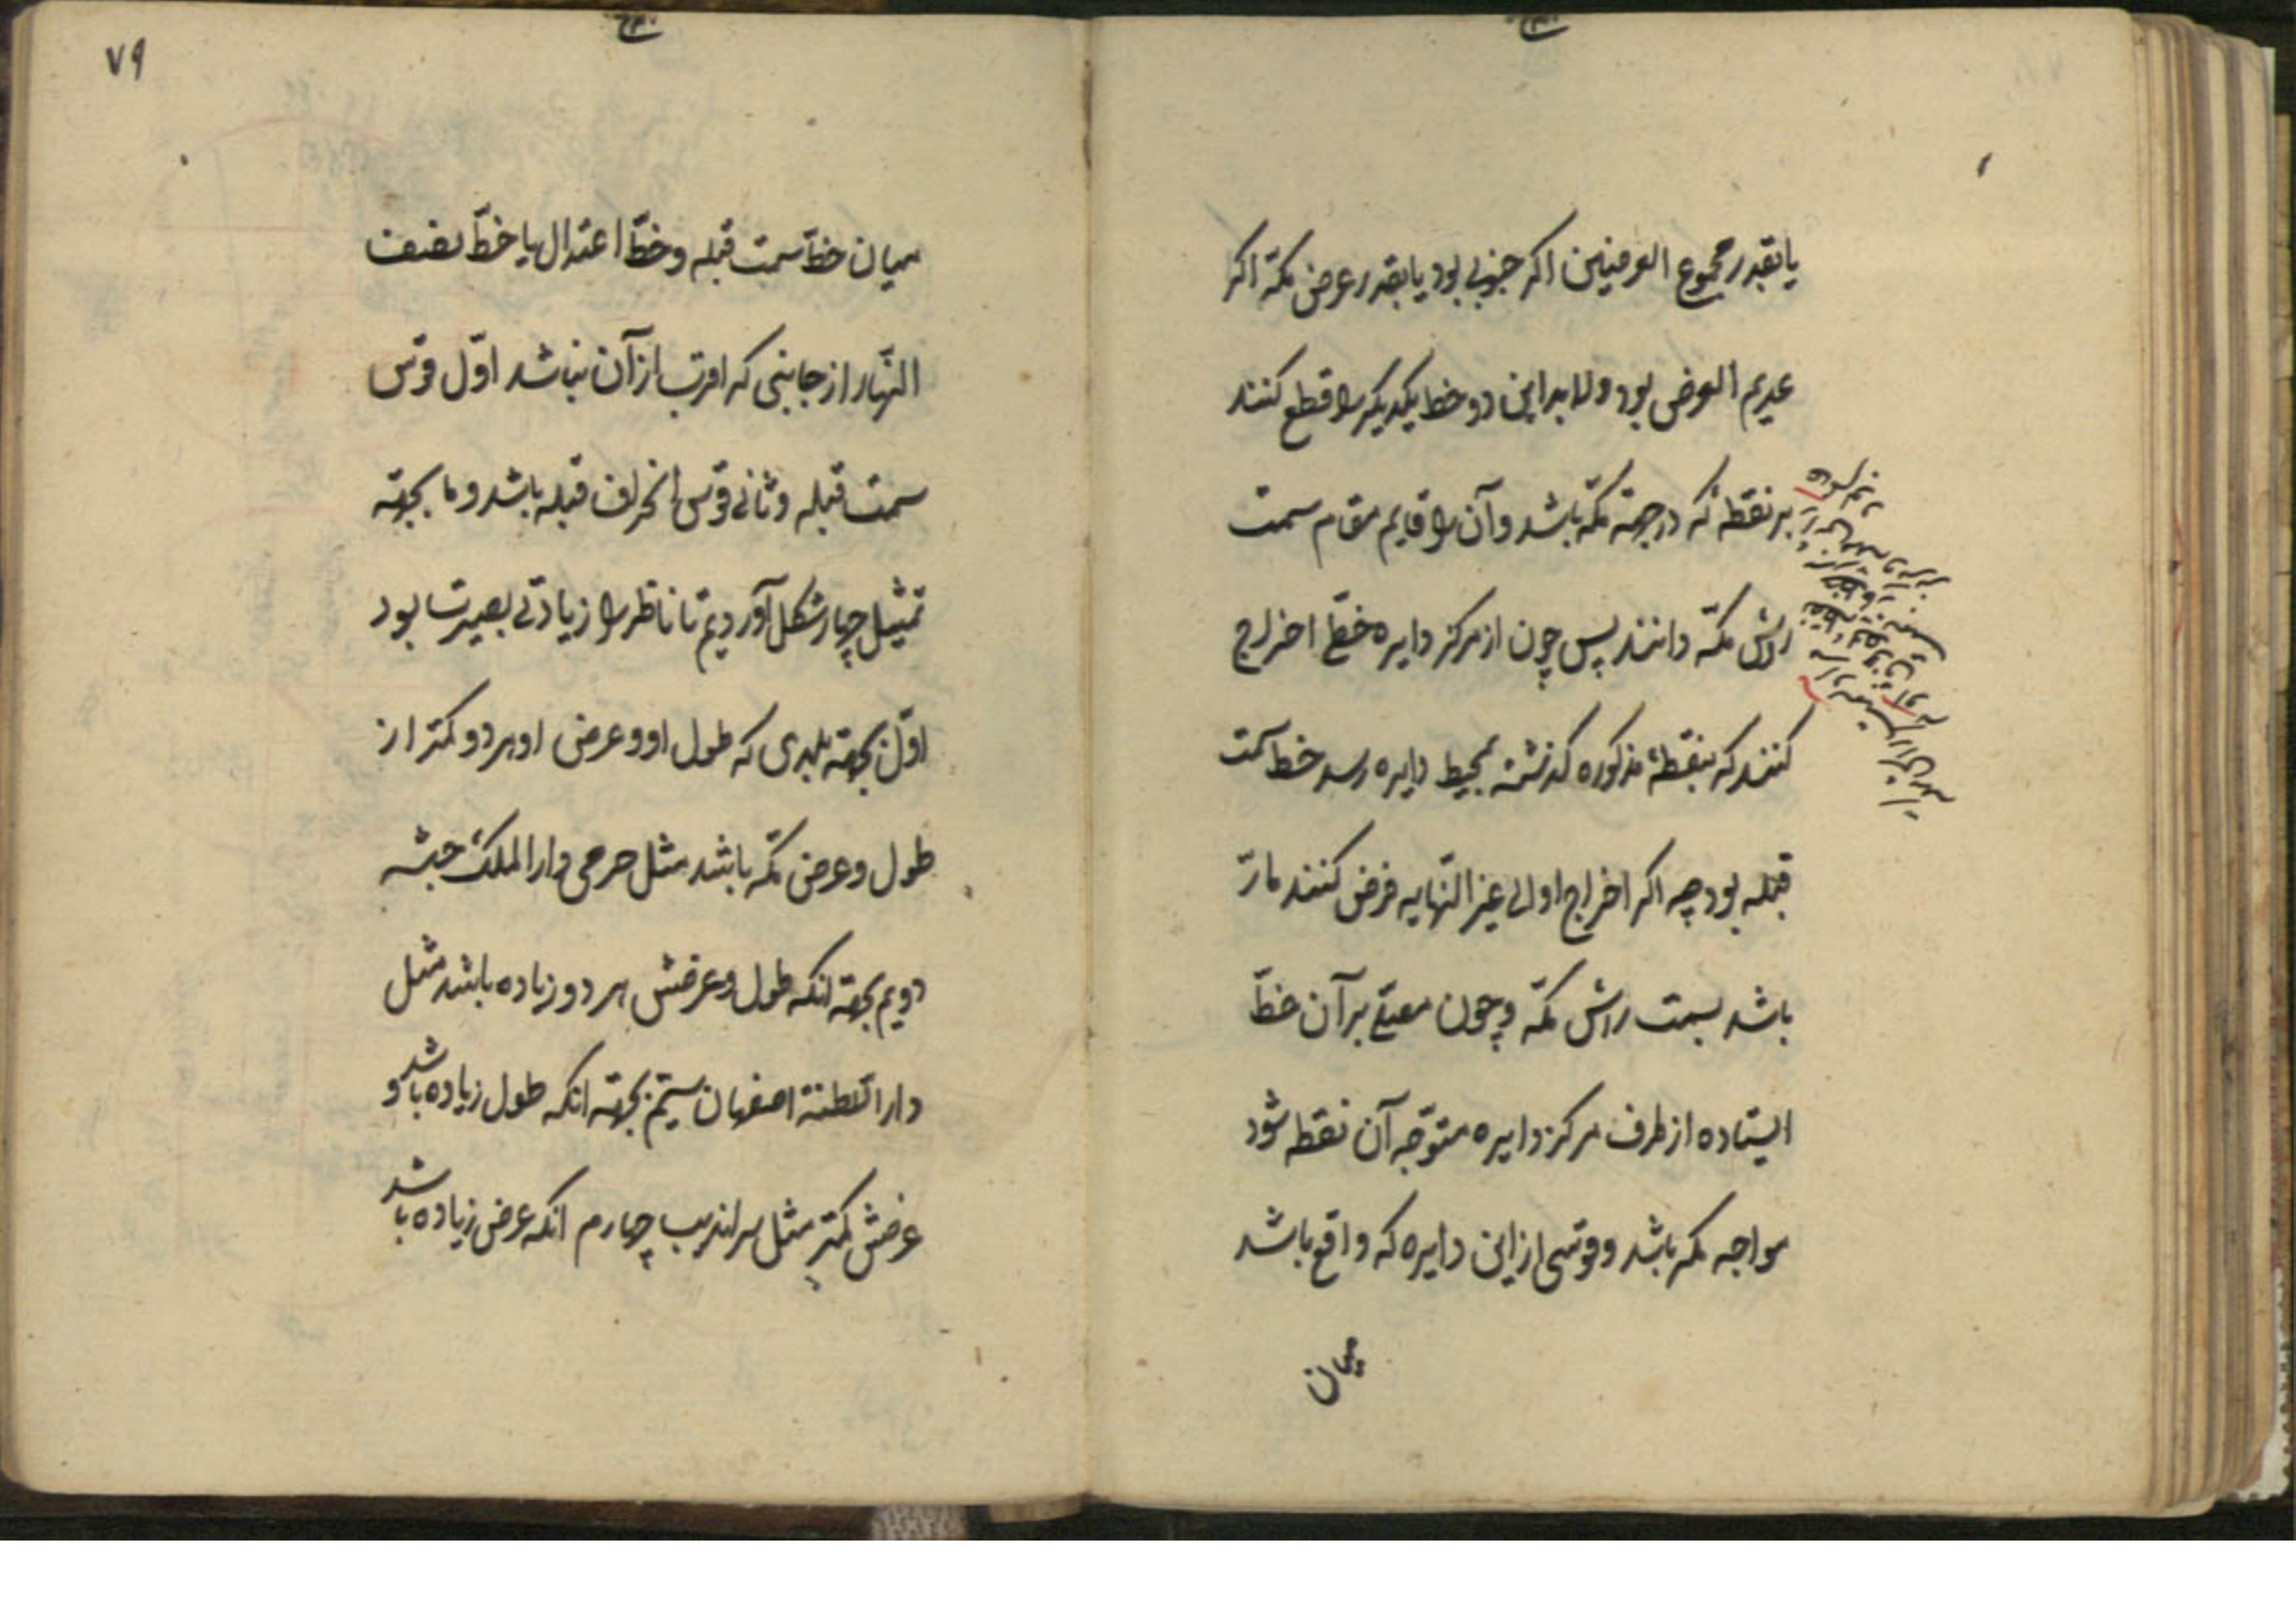 یا بقدر مجموع العرضین اکر جنوبی بود یا بقدر عرض مکّه اکر
عدیم العرض بود و لابد این دو خط یکدیکر را قطع کنند
بر نقطهٔ که در جهة مکّه باشد و آن را قایم مقام سمت
راس مکّه دانند پس چون از مرکز دایره خطّی اخراج
کنند که بنقطهٔ مذکوره کذشته بمحیط دایره رسد خط سمت
قبله بود چه اکر اخراج او الی غیر النّهایه فرض کنند مارّ
باشد بسمت راس مکّه و چون مصلّی بر آن خطّ
ایستاده از طرف مرکز دایره متوّجه آن نقطه شود
مواجه مکه باشد و قوسی از این دایره که واقع باشد
میان
۷۹
میان خطّ سمت قبله و خطّ اعتدال یا خطّ نصف
النّهار از جانبی که اقرب از آن نباشد اوّل قوس
سمت قبله و ثانی قوس انحراف قبله باشد و ما بجهته
تمثیل چهار شکل آوردیم تا ناظر را زیادتی بصیرت بود
اوّل بجهته بلدی که طول او و عرض او هر دو کمتر از
طول و عرض مکّه باشد مثل جرمی دار الملک حبشه
دویم بجهته انکه طول و عرضش هر دو زیاده باشد مثل
دار السّلطنة اصفهان سیّم بجهته انکه طول زیاده باشد و
عرضش کمتر مثل سراندیب چهارم انکه عرض زیاده باشد